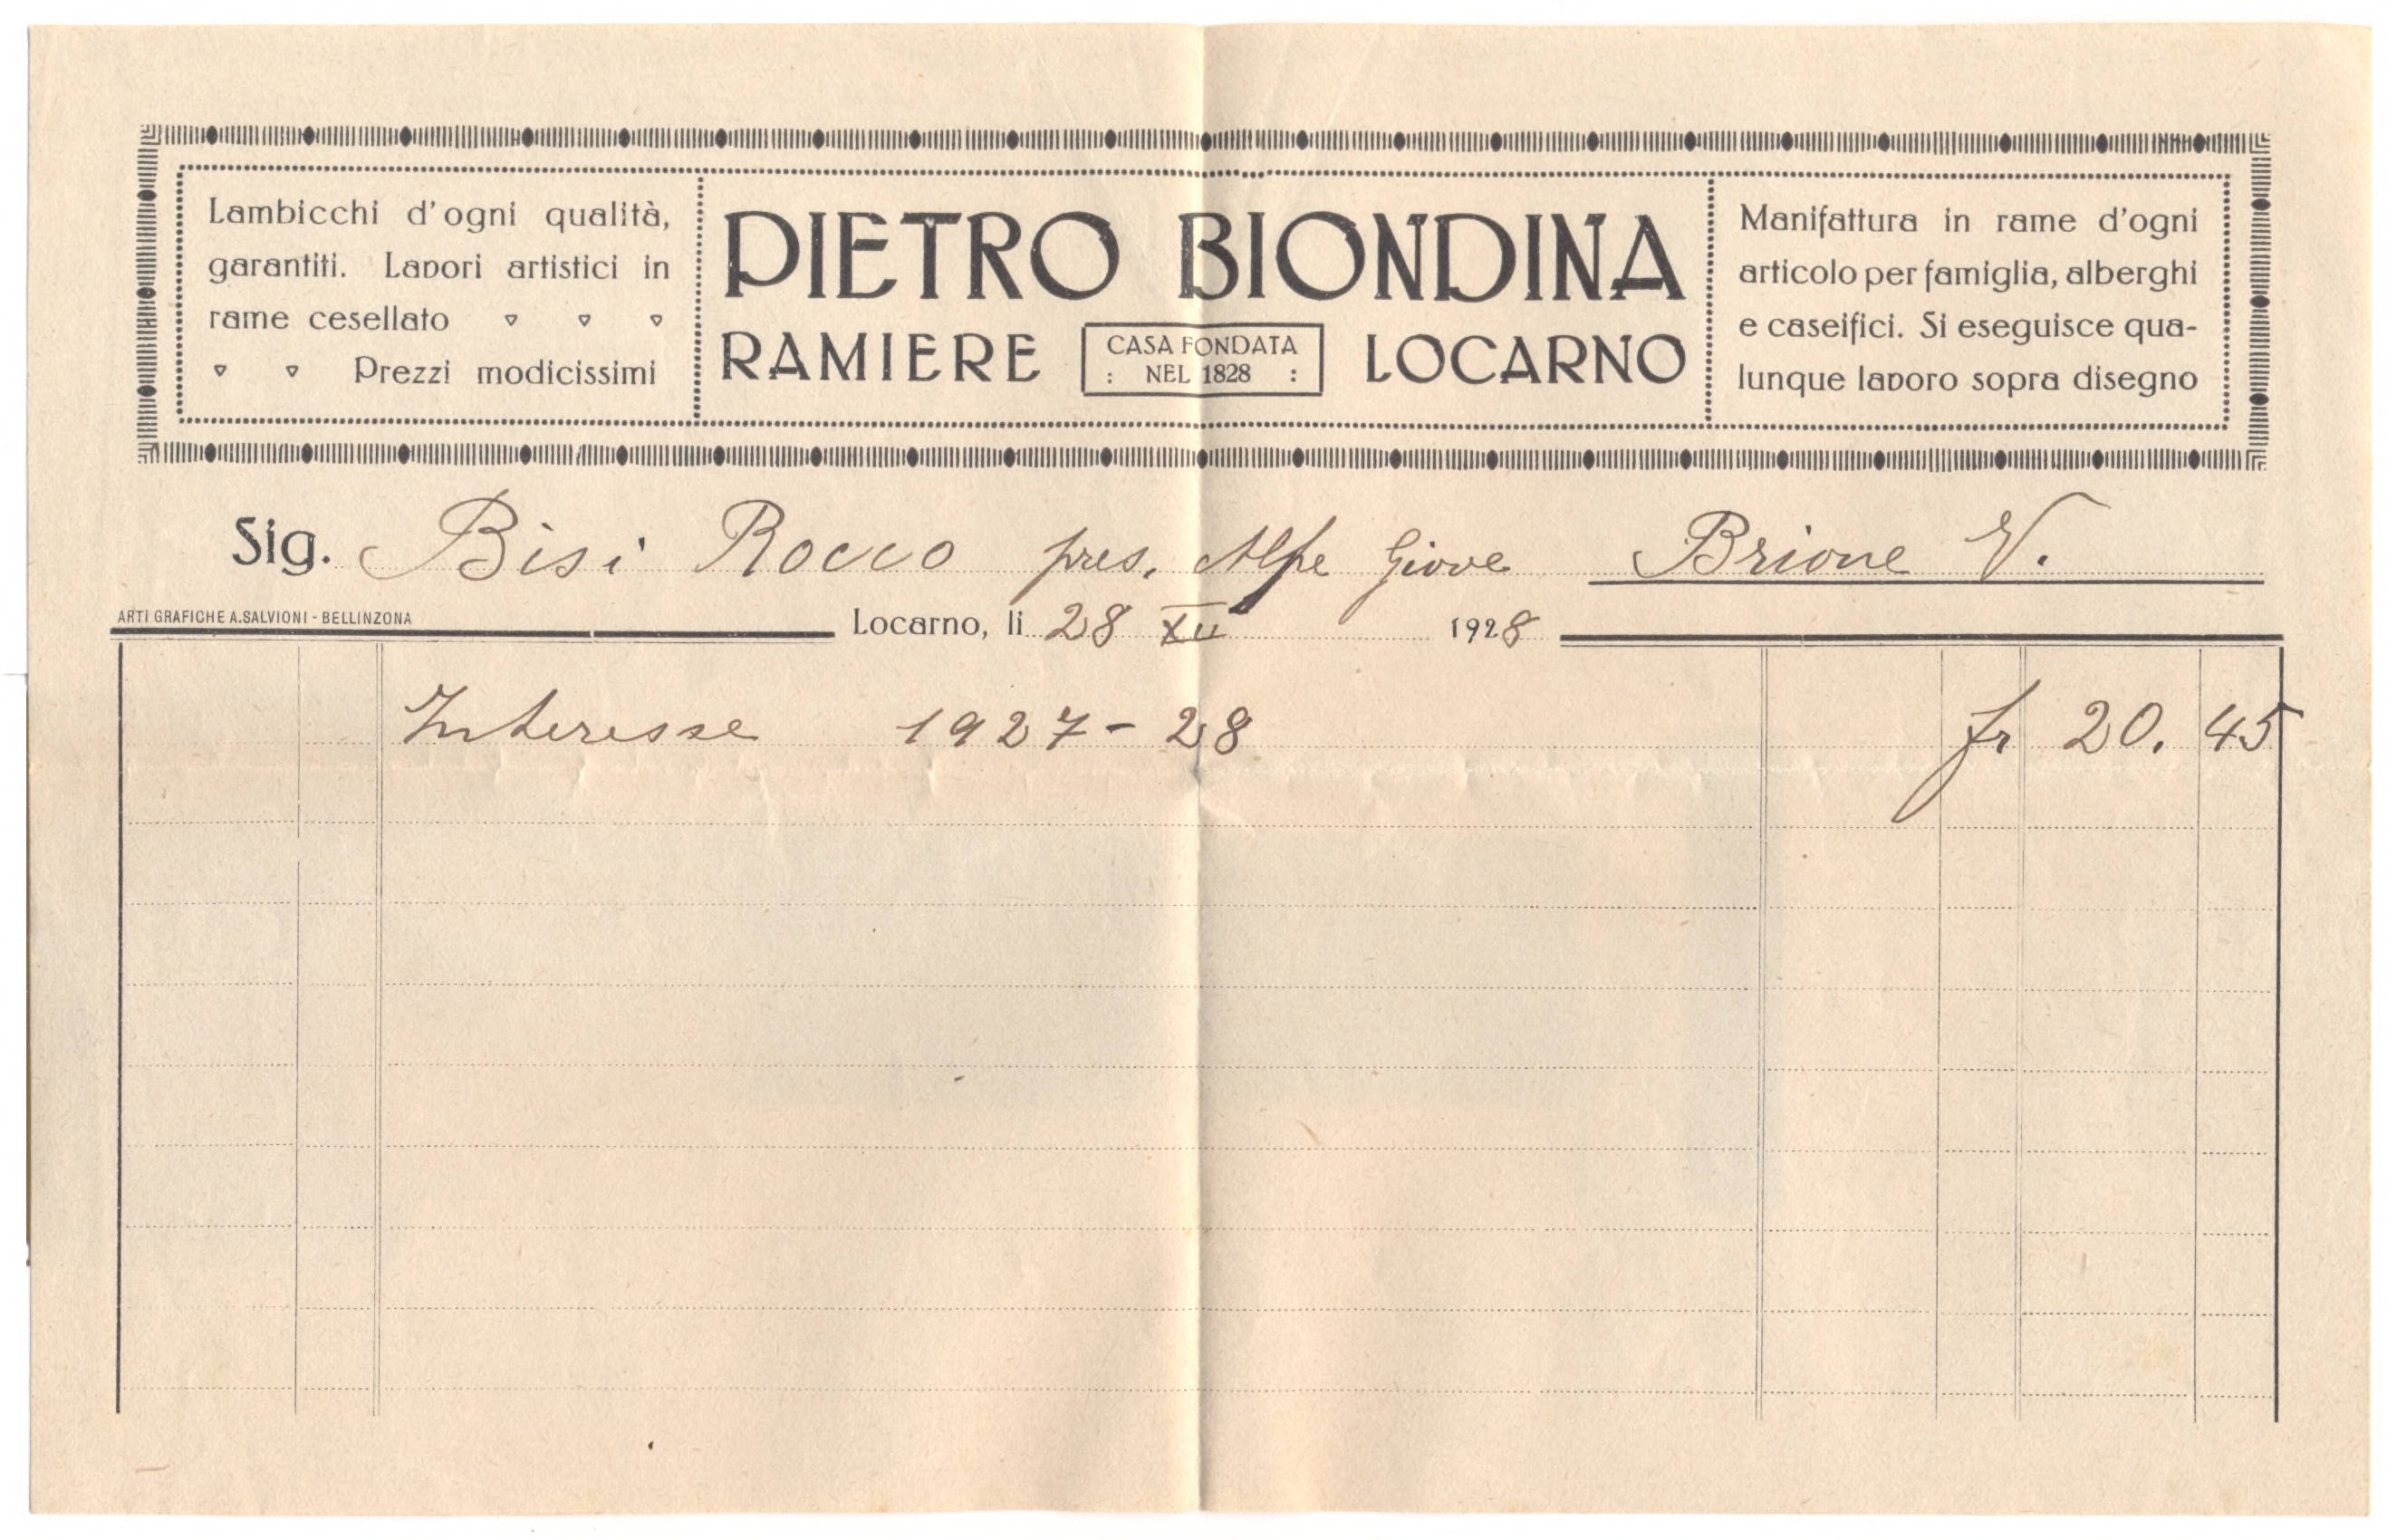 Lambicchi d'ogni qualità,
garantiti. Lavori artistici in
rame cesellato
Prezzi modicissimi
PIETRO BIONDINA
RAMIERE
CASA FONDATA
: NEL 1828 :
LOCARNO
Manifattura in rame d'ogni
articolo per famiglia, alberghi
e caseifici. Si eseguisce qua-
lunque lavoro sopra disegno
Sig. Bisi Rocco pres. Alpe Giove Brione V.
ARTI GRAFICHE A. SALVIONI - BELLINZONA
Locarno, li 28 XII 1928
Interesse 1927-28 fr 20.45